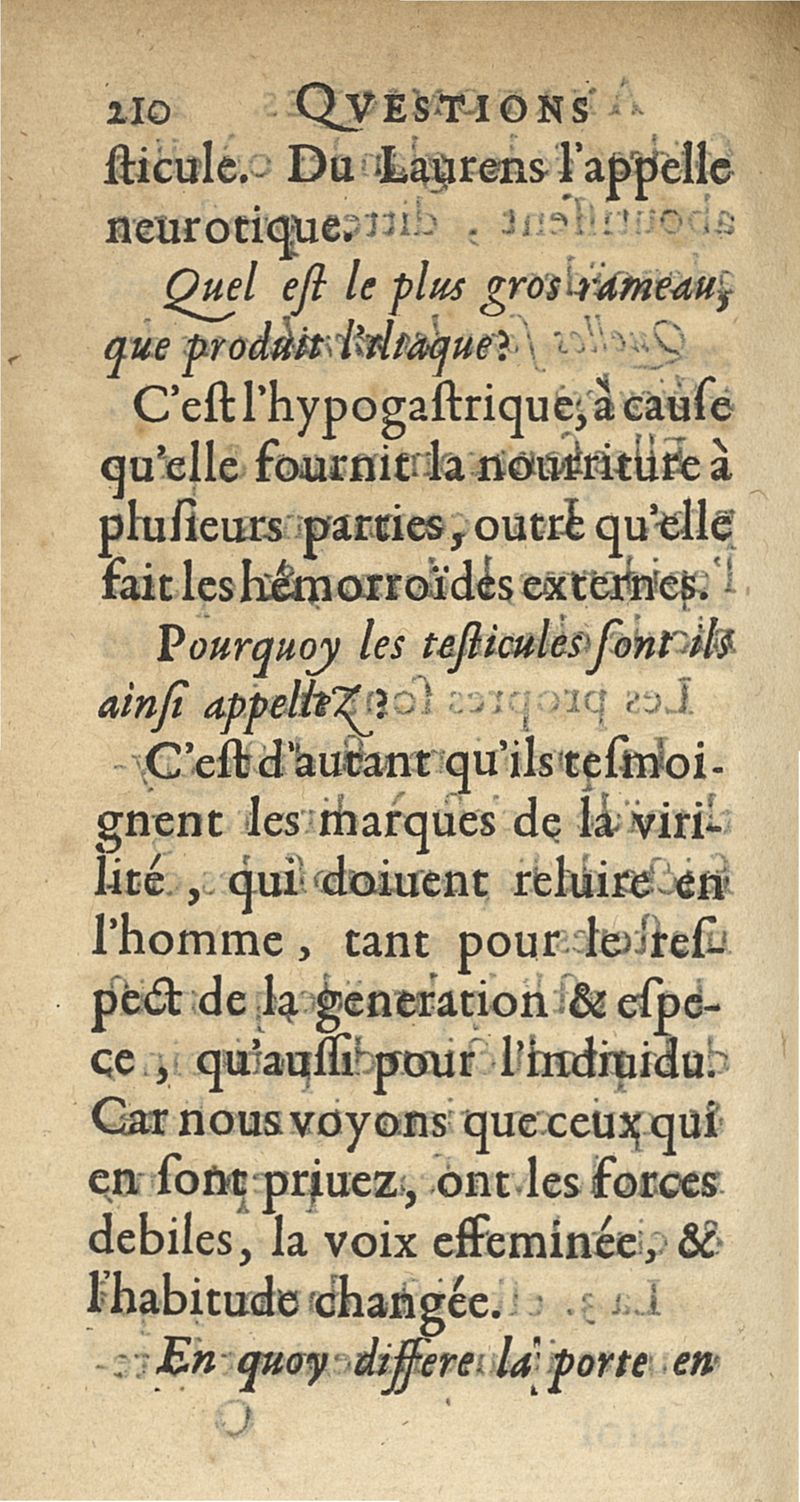 210 QVESTIONS
ſticule. Du Laurens l'appelle
neurotique.
Quel eſt le plus gros rameau,
que produit l'iliaque?
C'eſt l'hypogaſtrique, à cauſe
qu'elle fournit la nourriture à
pluſieurs parties, outre qu'elle
fait les hémorroïdes externes.
Pourquoy les teſticules ſont ils
ainſi appellez?
C'eſt d'autant qu'ils teſmoi-
gnent les marques de la viri-
lité, qui doiuent reluire en
l'homme, tant pour le reſ-
pect de la generation & eſpe-
ce, qu'auſſi pour l'indiuidu.
Car nous voyons que ceux qui
en ſont priuez, ont les forces
debiles, la voix effeminée, &
l'habitude changée.
En quoy differe la porte en